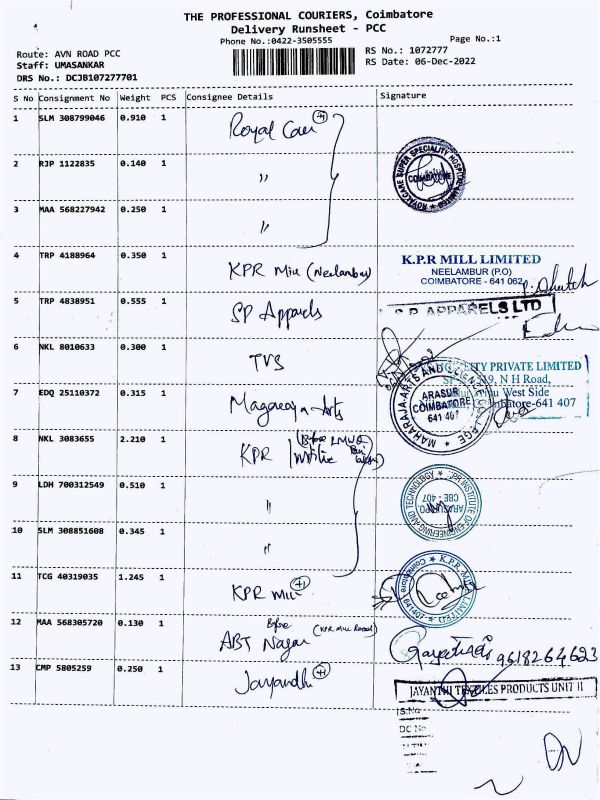 THE PROFESSIONAL COURIERS, Coimbatore
Delivery Runsheet - PCC
Phone No.:0422-3505555
Page No.:1
Route: AVN ROAD PCC
RS No.: 1072777
Staff: UMASANKAR
RS Date: 06-Dec-2022
DRS No.: DCJB107277701
S No Consignment No Weight PCS Consignee Details Signature
1 SLM 308799046 0.910 1 Royal Care +1
2 RJP 1122835 0.140 1 "
ROYALCARE SUPER SPECIALITY HOSPITAL LIMITED COIMBATORE
3 MAA 568227942 0.250 1 "
4 TRP 4188964 0.350 1 KPR Mill (Neelambur)
K.P.R MILL LIMITED
NEELAMBUR (P.O)
COIMBATORE - 641 062
5 TRP 4838951 0.555 1 SP Apparels
S.P. APPARELS LTD
6 NKL 8010633 0.300 1 TVS
ITY PRIVATE LIMITED
19, N H Road,
West Side
batore-641 407
7 EDQ 25110372 0.315 1
MAHARAJA ARTS AND SCIENCE COLLEGE
ARASUR
COIMBATORE
641 407
8 NKL 3083655 2.210 1 KPR
9 LDH 700312549 0.510 1 "
KPR INSTITUTE OF ENGINEERING AND TECHNOLOGY
CBE - 407
10 SLM 308851608 0.345 1 "
11 TCG 40319035 1.245 1 KPR Mill +1
K.P.R. MILL LIMITED
12 MAA 568305720 0.130 1 ABT Nagar (KPR Mill Road)
9618264623
13 CMP 5805259 0.250 1 Jayandhi +1
JAYANTHI TEXTILES PRODUCTS UNIT II
S.No
DC No